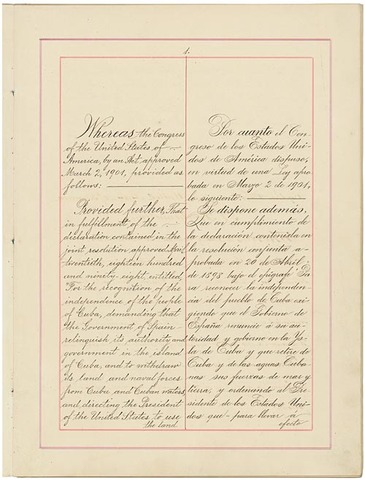 1.
Whereas the Congress
of the United States of
America, by an Act approved
March 2, 1901, provided as
follows:
Provided further, That
in fulfillment of the
declaration contained in the
joint resolution approved April
twentieth, eighteen hundred
and ninety-eight, entitled,
For the recognition of the
independence of the people
of Cuba, demanding that
the Government of Spain
relinquish its authority and
government in the island
of Cuba, and to withdraw
its land and naval forces
from Cuba and Cuban waters,
and directing the President
of the United States to use
the land
Por cuanto el Con-
greso de los Estados Uni-
dos de América dispuso,
en virtud de una Ley apro-
bada en Marzo 2 de 1901,
lo siguiente:
Se dispone además,
Que en cumplimiento de
la declaración contenida en
la resolución conjunta a-
probada en 20 de Abril
de 1898 bajo el epígrafe "Pa-
ra reconocer la independen-
cia del pueblo de Cuba exi-
giendo que el Gobierno de
España renuncie á su au-
toridad y gobierno en la Is-
la de Cuba y que retire de
Cuba y de las aguas Cuba-
nas sus fuerzas de mar y
tierra, y ordenando al Pre-
sidente de los Estados Uni-
dos que para llevar á
efecto